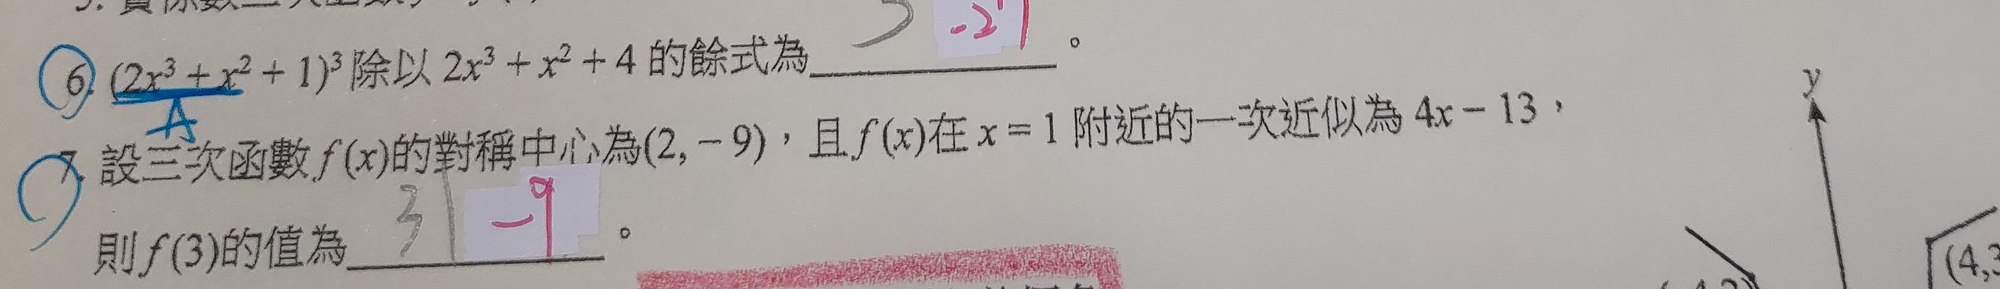 6. (2x³ + x² + 1)³ 除以 2x³ + x² + 4 的餘式為
-2
。
A
7. 設三次函數 f(x)的對稱中心為(2, -9),且 f(x)在 x = 1 附近的一次近似為 4x - 13,
則 f(3)的值為 3 -9 。
y
(4,3